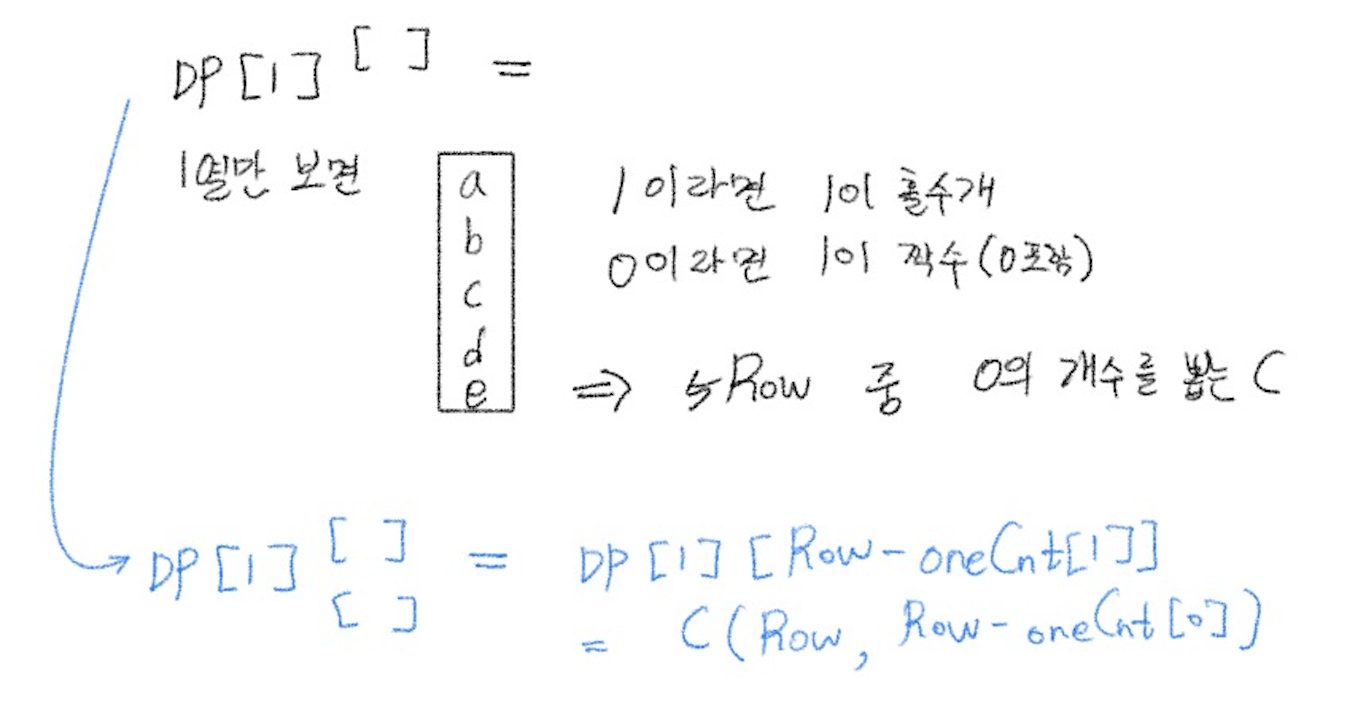 DP[1][ ] =
1열만 보면
a
b
c
d
e
1이라면 1이 홀수개
0이라면 1이 짝수(0포함)
=> 5Row 중 0의 개수를 뽑는 C
DP[1][ ] = DP[1][Row-oneCnt[1]]
[ ]
= C(Row, Row-oneCnt[0])